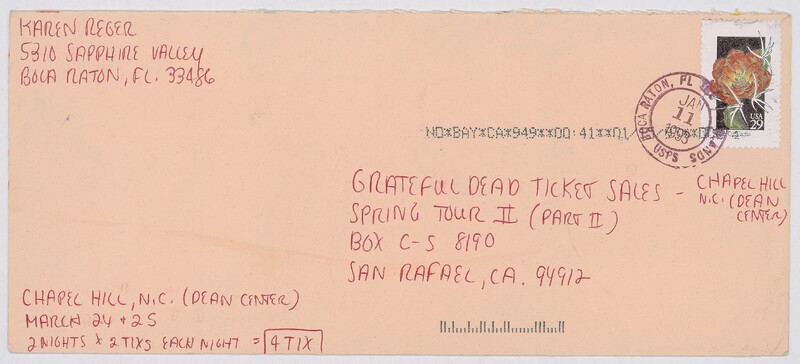 KAREN REGER
5310 SAPPHIRE VALLEY
BOCA RATON, FL. 33486
USA
29
BOCA RATON, FL
JAN
11
1993
USPS
NO*BAY*CA*949**DO:41**01/
GRATEFUL DEAD TICKET SALES - CHAPEL HILL
N.C. (DEAN
CENTER)
SPRING TOUR II (PART II)
BOX C-S 8190
SAN RAFAEL, CA. 94912
CHAPEL HILL, N.C. (DEAN CENTER)
MARCH 24 + 25
2 NIGHTS x 2 TIXS EACH NIGHT = 4 TIX